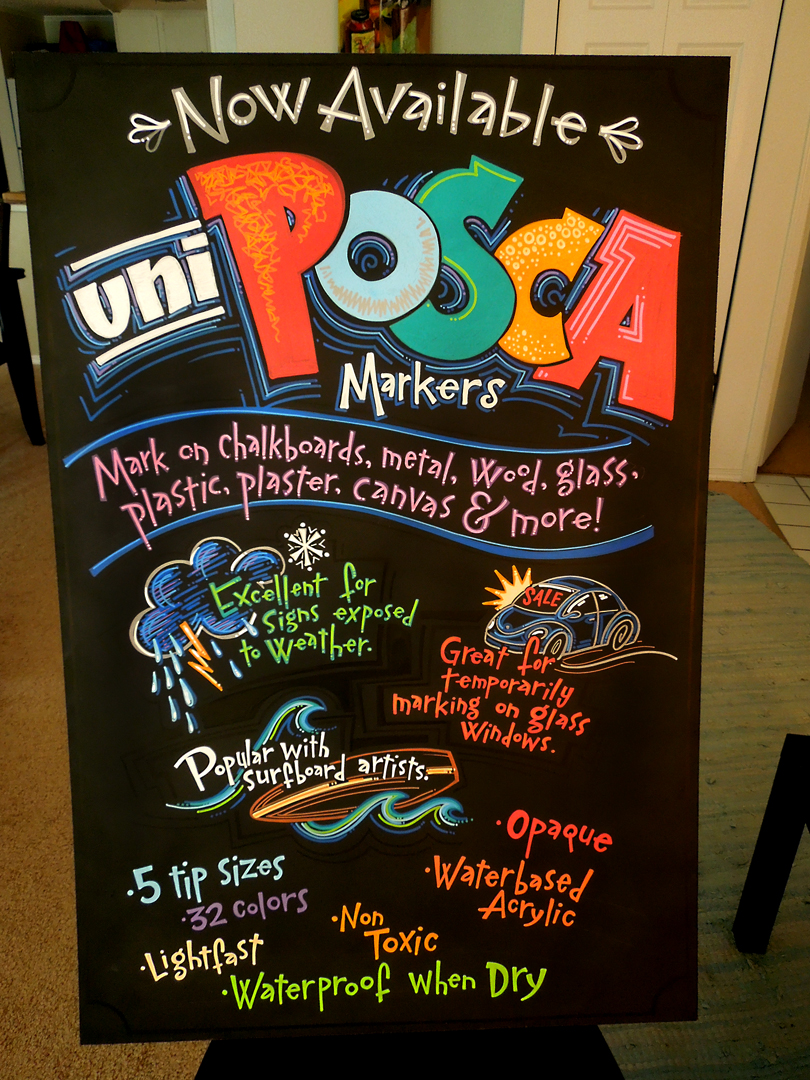 Now Available
uni POSCA
Markers
Mark on chalkboards, metal, wood, glass,
plastic, plaster, canvas & more!
Excellent for
signs exposed
to weather.
SALE
Great for
temporarily
marking on glass
windows.
Popular with
surfboard artists.
· Opaque
· 5 tip sizes
· Waterbased
Acrylic
· 32 colors
· Non
Toxic
· Lightfast
· Waterproof when Dry